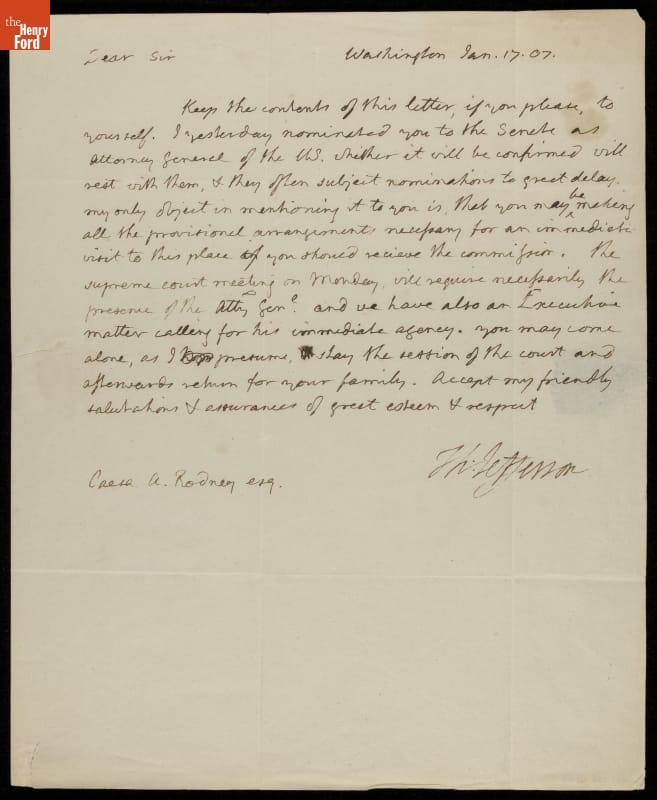 the
Henry
Ford
Dear Sir
Washington Jan. 17. 07.
Keep the contents of this letter, if you please, to
yourself. I yesterday nominated you to the Senate as
Attorney General of the U.S. whether it will be confirmed will
rest with them, & they often subject nominations to great delay.
my only object in mentioning it to you is, that you may be making
all the provisional arrangements necessary for an immediate
visit to this place if you should recieve the commission. the
supreme court meeting on Monday, will require necessarily the
presence of the Atty Genl. and we have also an Executive
matter calling for his immediate agency. you may come
alone, as I presume, stay the session of the court and
afterwards return for your family. Accept my friendly
salutations & assurances of great esteem & respect
Th: Jefferson
Caesar A. Rodney esq.